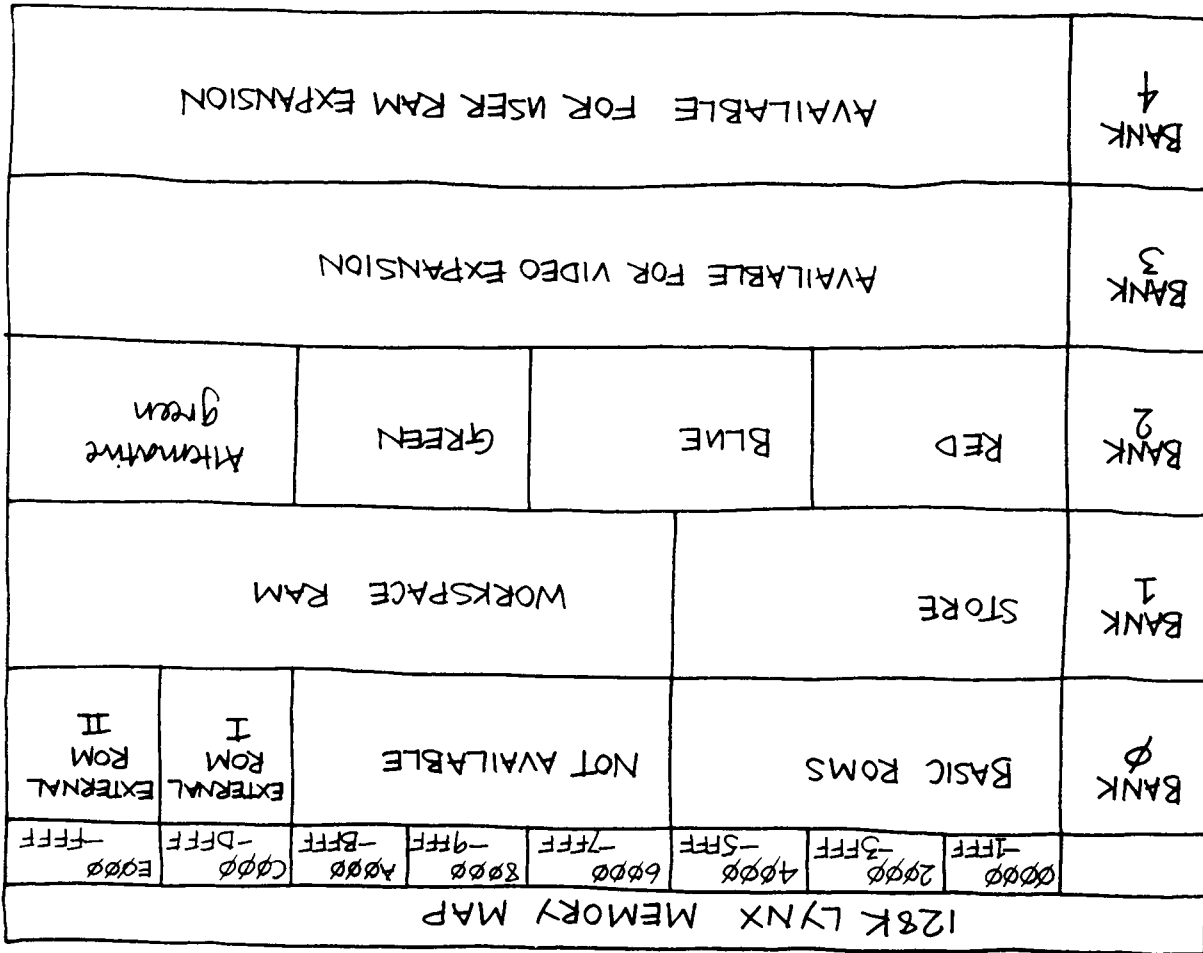 128K LYNX MEMORY MAP
0000 -1FFF
2000 -3FFF
4000 -5FFF
6000 -7FFF
8000 -9FFF
A000 -BFFF
C000 -DFFF
E000 -FFFF
BANK 0
BASIC ROMS
NOT AVAILABLE
EXTERNAL ROM I
EXTERNAL ROM II
BANK 1
STORE
WORKSPACE RAM
BANK 2
RED
BLUE
GREEN
Alternative green
BANK 3
AVAILABLE FOR VIDEO EXPANSION
BANK 4
AVAILABLE FOR USER RAM EXPANSION